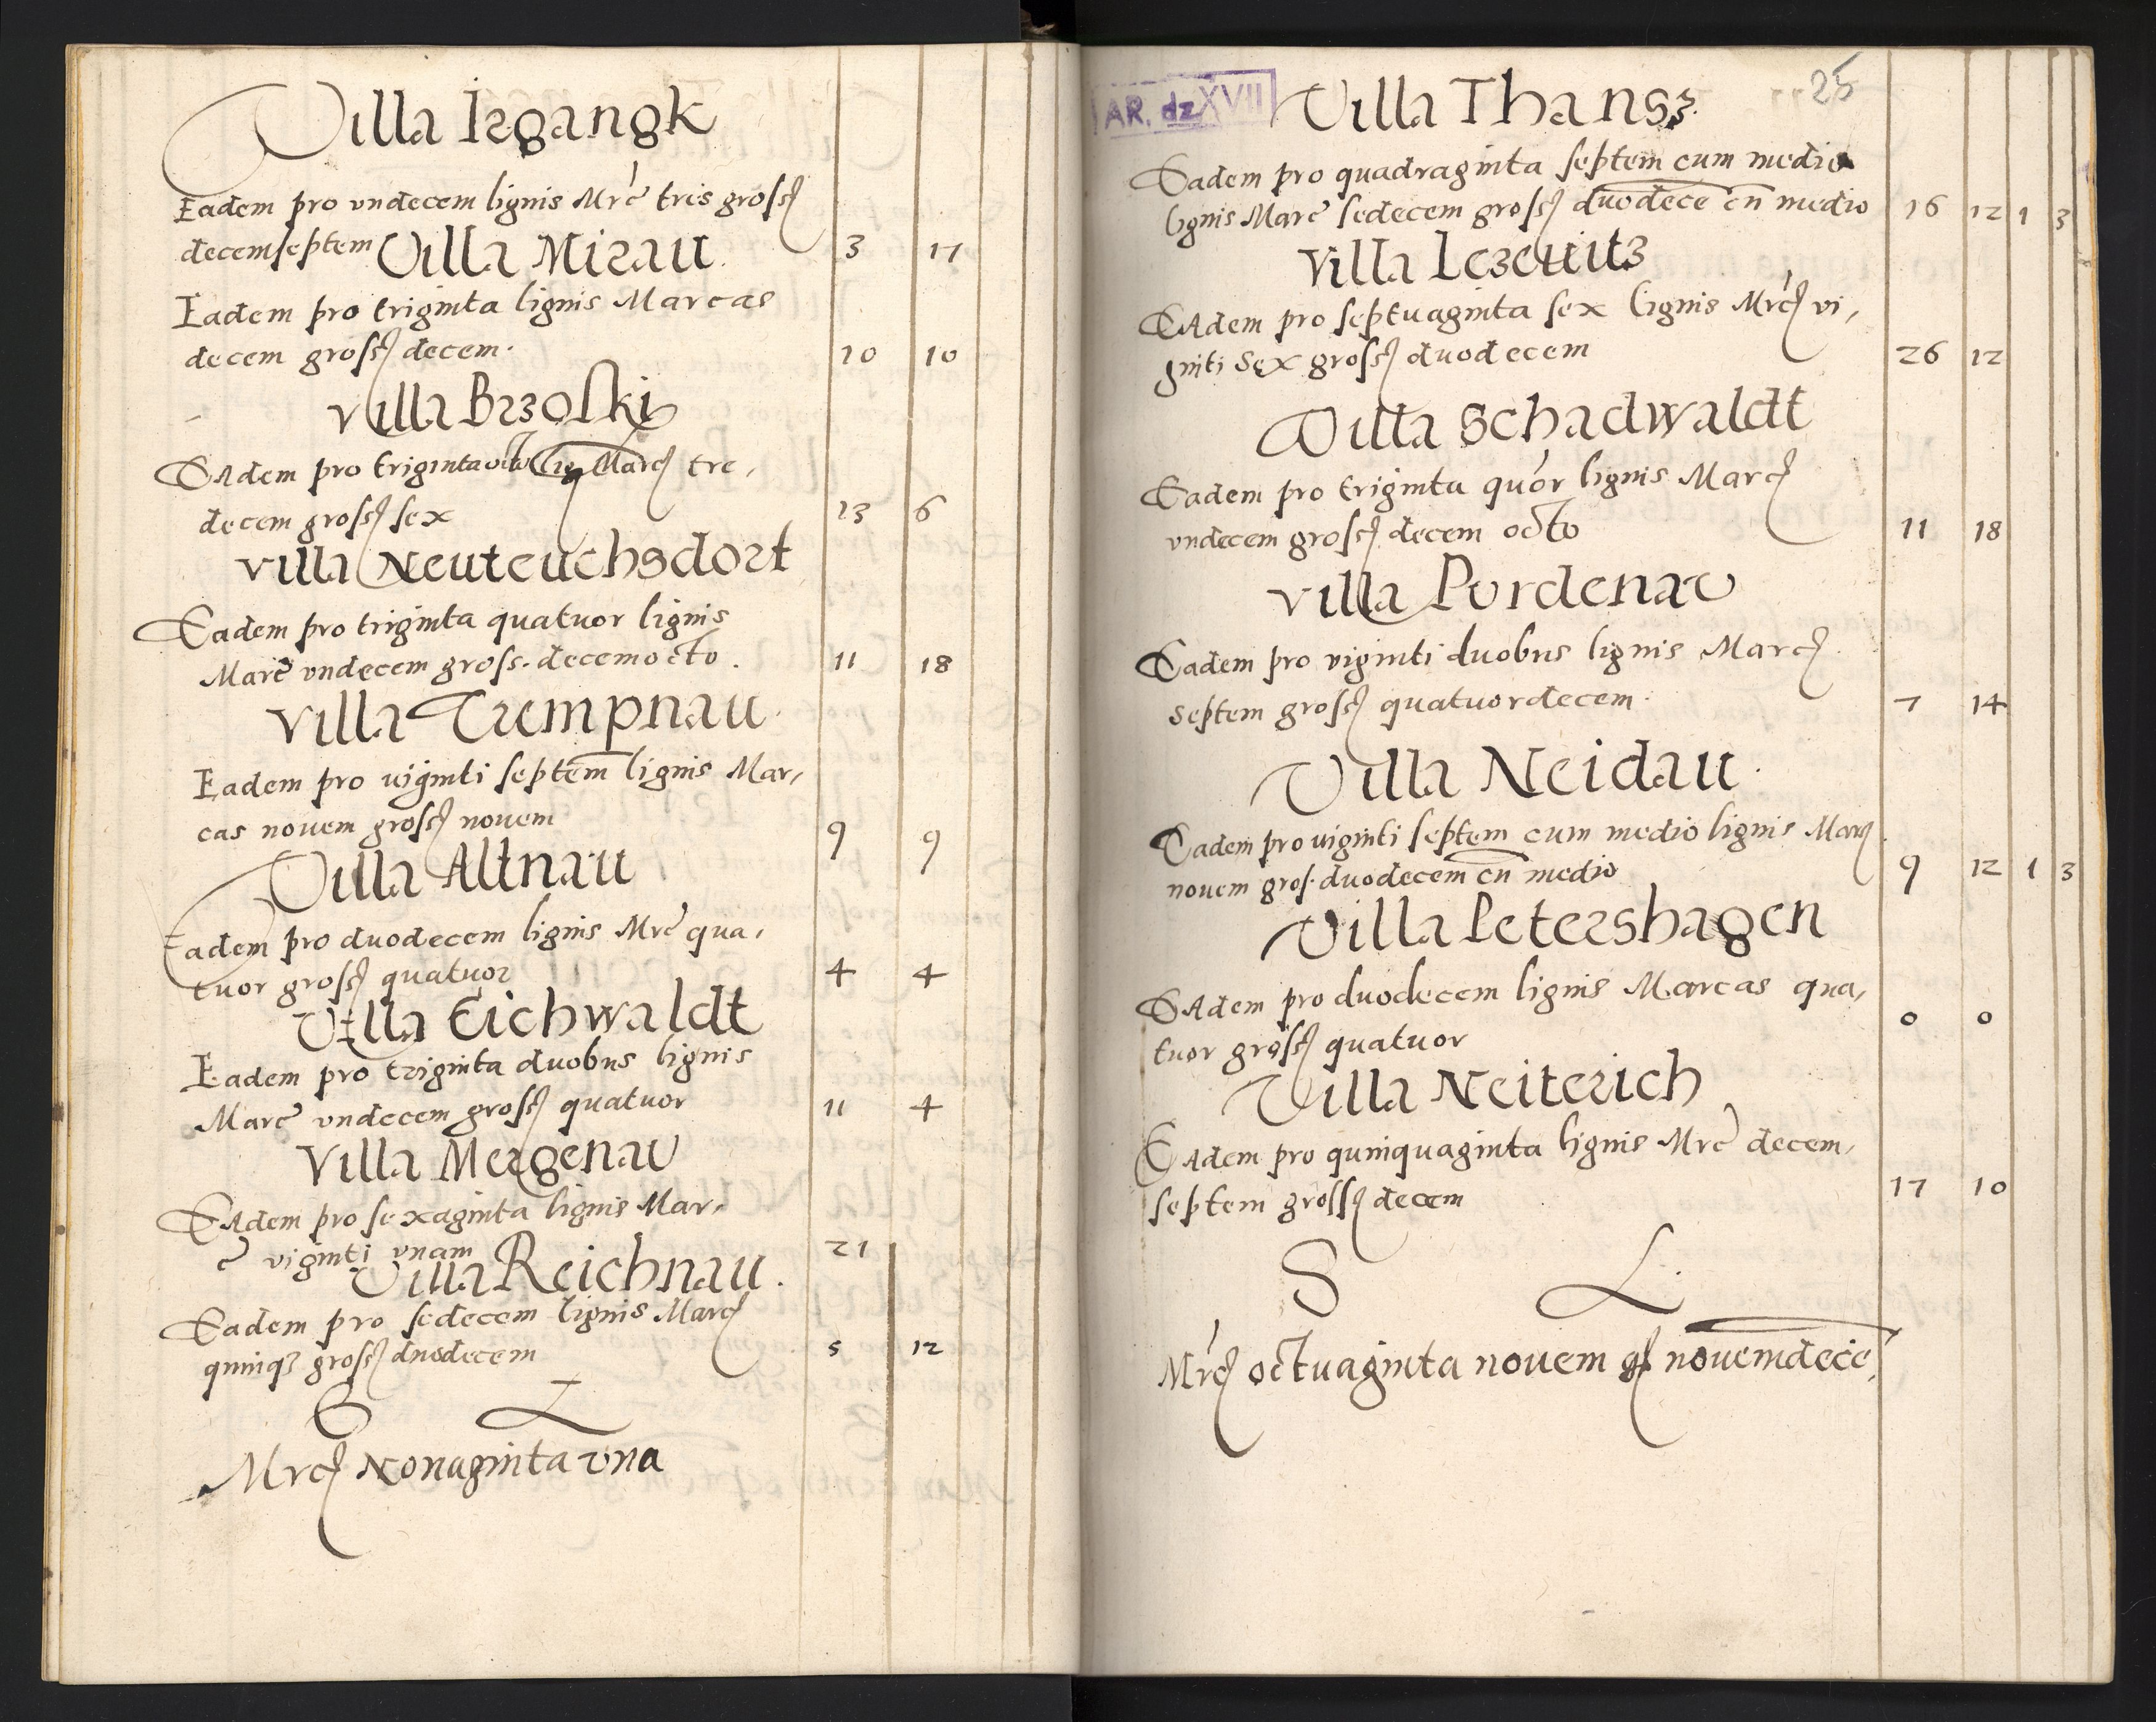 Villa Irgangk
Eadem pro vndecem lignis Mrc tris gross
decemseptem 3 17
Villa Mirau.
Eadem pro triginta lignis Marcas
decem gross decem. 10 10
Villa Brzoski
EAdem pro triginta octo lig Marc tre,
decem gross sex 13 6
Villa Neuteuchsdorf
Eadem pro triginta quatuor lignis
Marc vndecem gross. decemocto. 11 18
Villa Trempnau.
Eadem pro uiginti septem lignis Mar,
cas nouem gross nouem 9 9
Villa Altnau
Eadem pro duodecem lignis Mrc qua,
tuor gross quatuor 4 4
Villa Eichwaldt
Eadem pro triginta duobus lignis
Marc vndecem gross quatuor 11 4
Villa Mergenau
EAdem pro sexaginta lignis Mar,
c viginti vnam 21
Villa Reichnau.
Eadem pro sedecem lignis Marc
quinq3 gross duodecem 5 12
S L
Mrc Nonaginta vna
25
AR. dz XVII
Villa Thans3.
Eadem pro quadraginta septem cum medio
lignis Marc sedecem gross duodece cu medio 16 12 1 3
Villa Lezeuitz
EAdem pro septuaginta sex lignis Mrc vi,
ginti Sex gross duodecem 26 12
Villa Schadwaldt
Eadem pro triginta quor lignis Marc
vndecem gross decem octo 11 18
Villa Pordenau
Eadem pro viginti duobus lignis Marc.
septem gross quatuordecem. 7 14
Villa Neidau.
Eadem pro uiginti septem cum medio lignis Marc.
nouem gros. duodecem cu medio 9 12 1 3
Villa Petershagen
EAdem pro duodecem lignis Marcas qua,
tuor gross quatuor 0 0
Villa Neiterich
EAdem pro quinquaginta lignis Mrc decem,
septem gross decem 17 10
S L.
Mrc octuaginta nouem gs nouemdece,